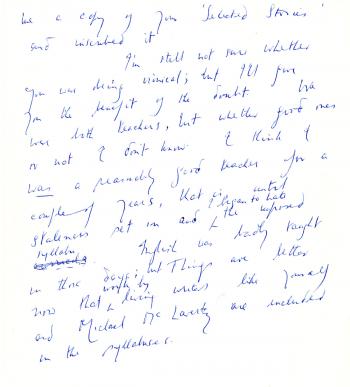 me a copy of your 'Selected Stories'
and inscribed it
I'm still not sure whether
you was being ironical; but I'll give
you the benefit of the doubt. We
was both teachers, but whether good ones
or not I don't know. I think I
was a reasonably good teacher for a
couple of years, that is until
staleness set in and I began to hate the imposed
syllabus
English was badly taught
in those days; but Things are better
now that works by living writers like yourself
and Michael Mc Laverty are included
in the syllabuses.